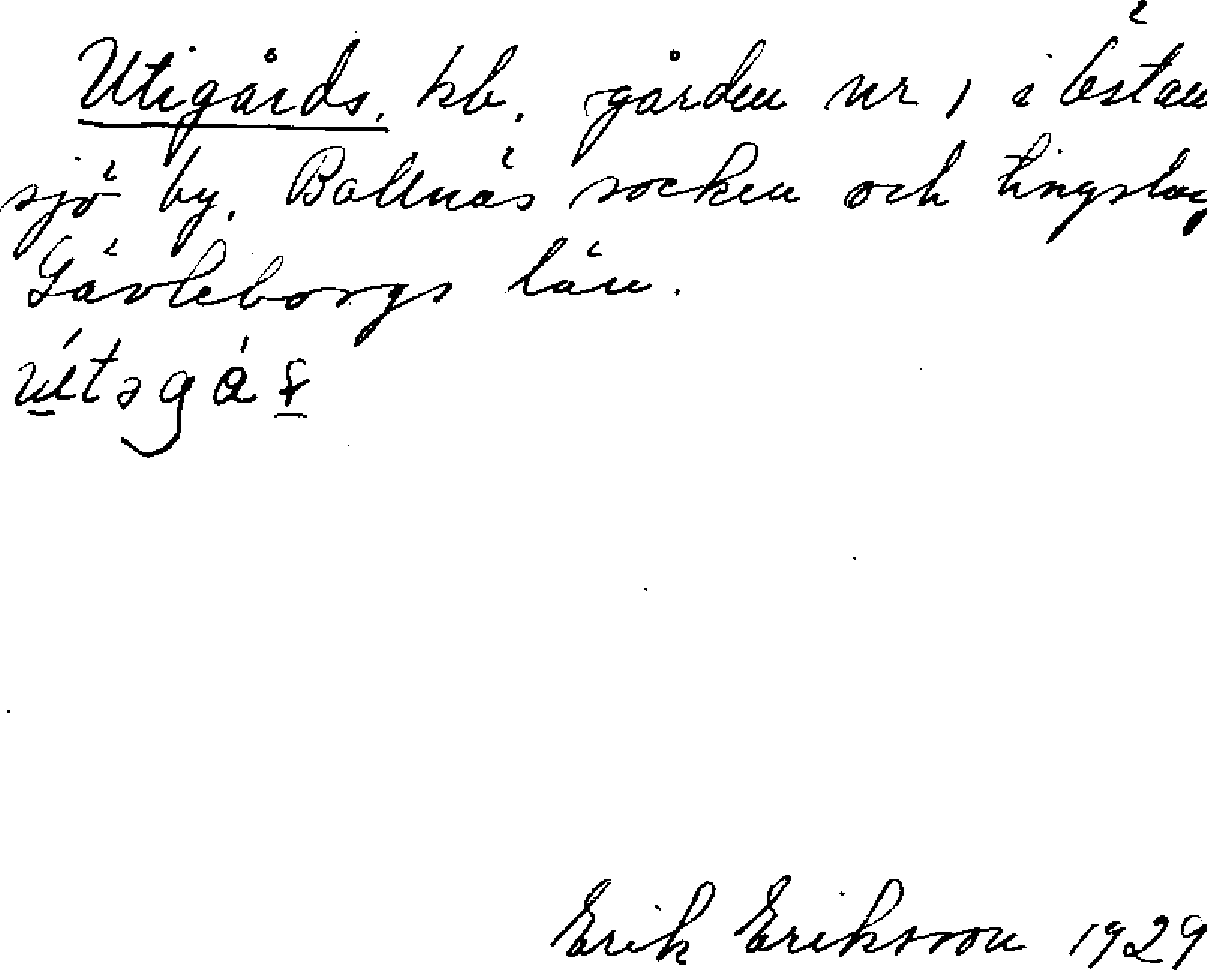 Utigårds. kb. gården nr 1 i Östan
sjö by. Bollnäs socken och tingslag
Gävleborgs län.
Erik Eriksson 1929